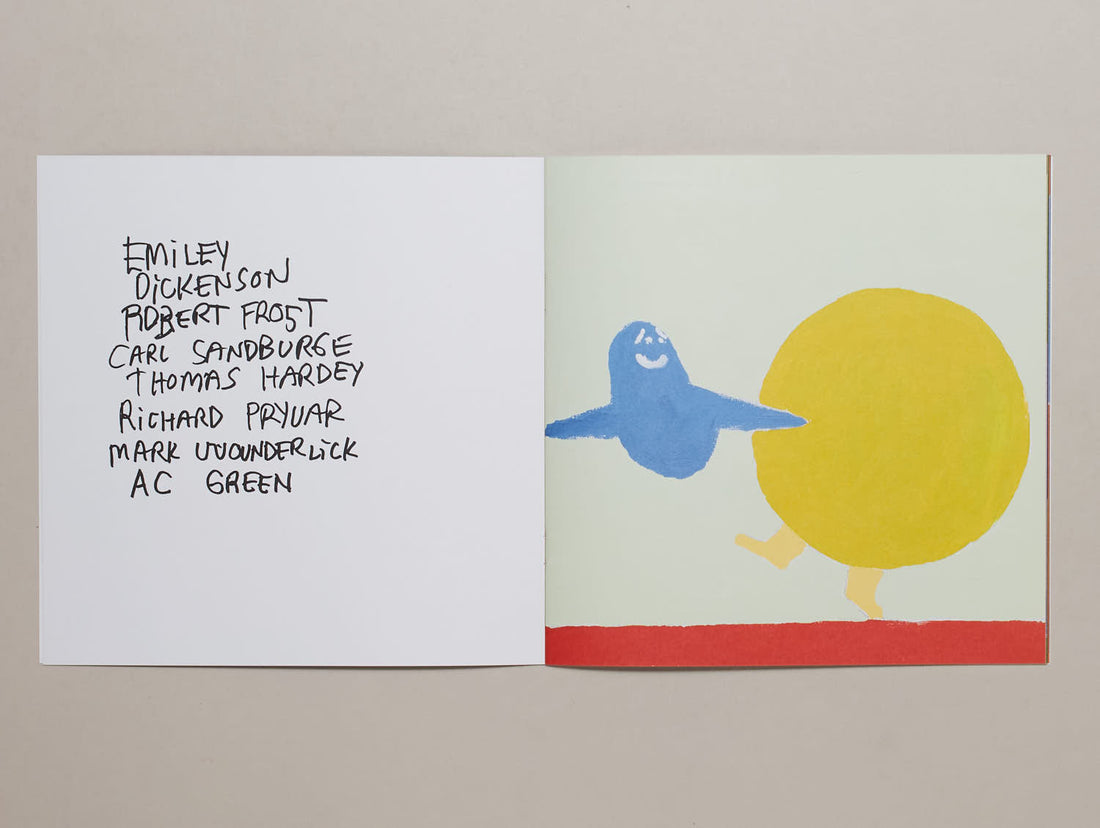 EMiLEY
DiCKENSON
ROBERT FROST
CARL SANDBURGE
THOMAS HARDEY
RiCHARD PRYUAR
MARK WOUNDERLiCK
AC GREEN